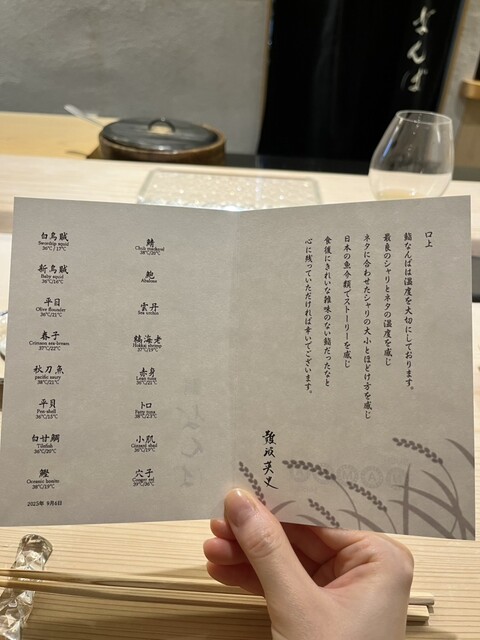 なんば
白烏賊
Swordtip squid
36℃/17℃
新烏賊
Baby squid
平目
Olive flounder
36℃/21℃
春子
Crimson sea-bream
37℃/22℃
秋刀魚
pacific saury
38℃/21℃
平貝
Pen-shell
36℃/15℃
白甘鯛
Tilefish
36℃/20℃
鰹
Oceanic bonito
38℃/19℃
2023年 9月6日
鯖
Chub mackerel
鮑
Abalone
雲丹
Sea urchin
縞海老
Hokkai shrimp
37℃/19℃
赤身
Lean tuna
トロ
Fatty tuna
小肌
Gizzard shad
36℃/19℃
穴子
Conger eel
口上
鮨なんばは温度を大切にしております。
最良のシャリとネタの温度を感じ
ネタに合わせたシャリの大小とほどけ方を感じ
日本の魚介類でストーリーを感じ
食後にきれいな雑味のない鮨だったなと
心に残っていただければ幸いでございます。
難波英史